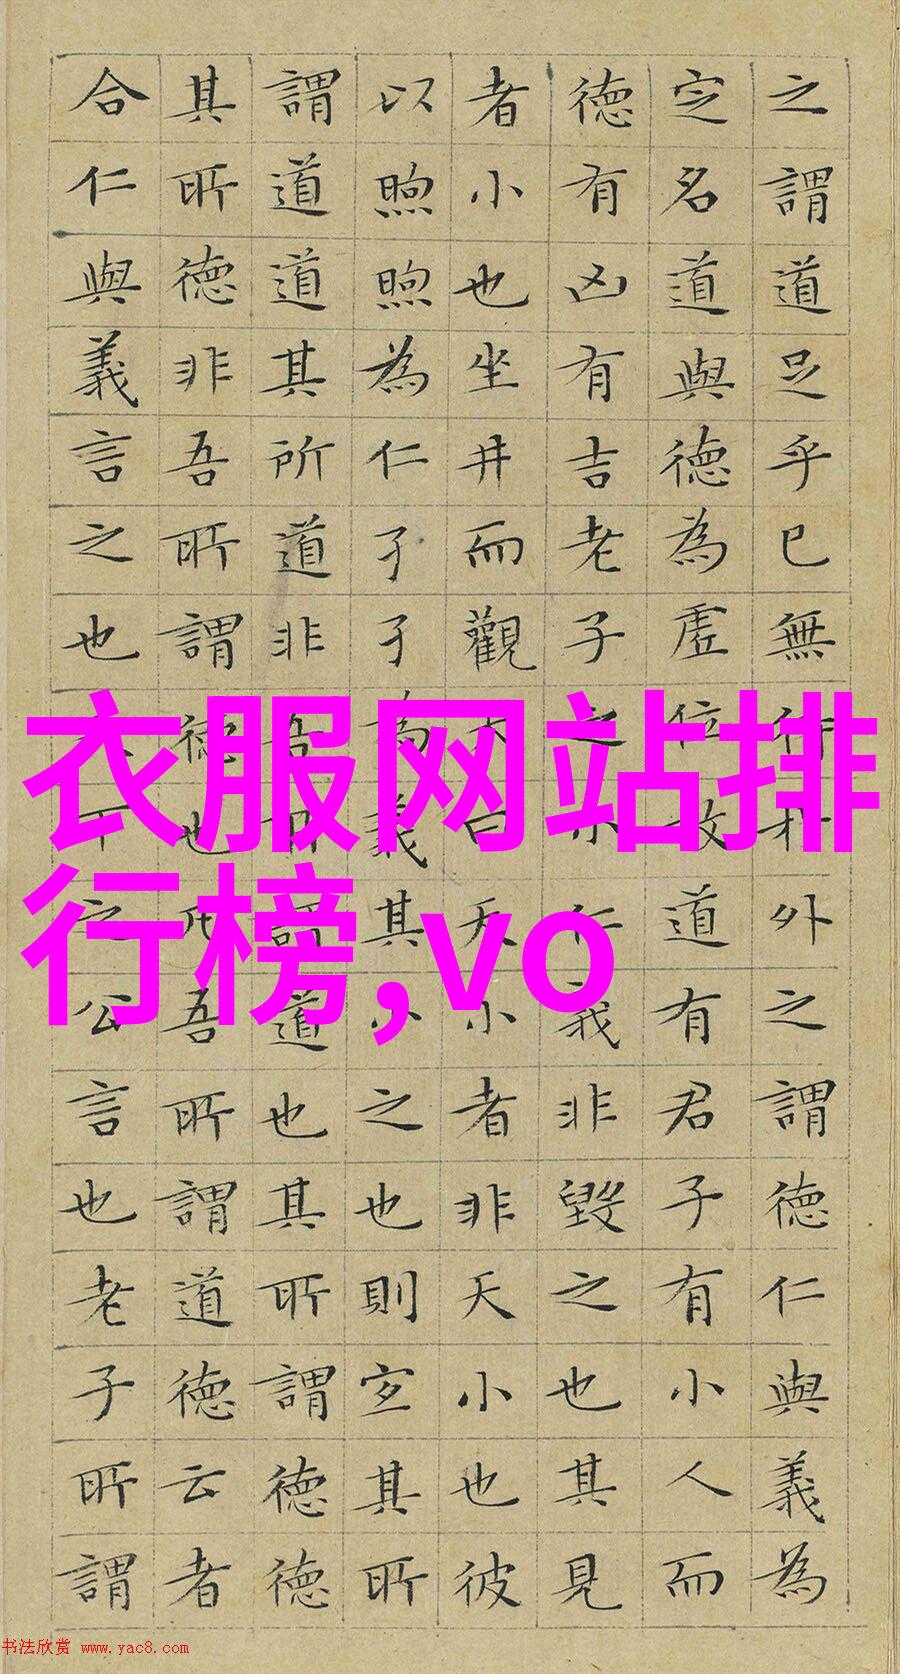 之謂道足乎己無待於外之謂德仁與義為
定名道與德為虛位故道有君子有小人而
德有凶有吉老子之小仁義非毀之也其見
者小也坐井而觀天曰天小者非天小也彼
以煦煦為仁孑孑為義其小之也則宜其所
謂道道其所道非吾所謂道也其所謂德德
其所德非吾所謂德也凡吾所謂道德云者
合仁與義言之也天下之公言也老子所謂
衣服网站排
行榜,vo
书法欣赏 www.yac8.com